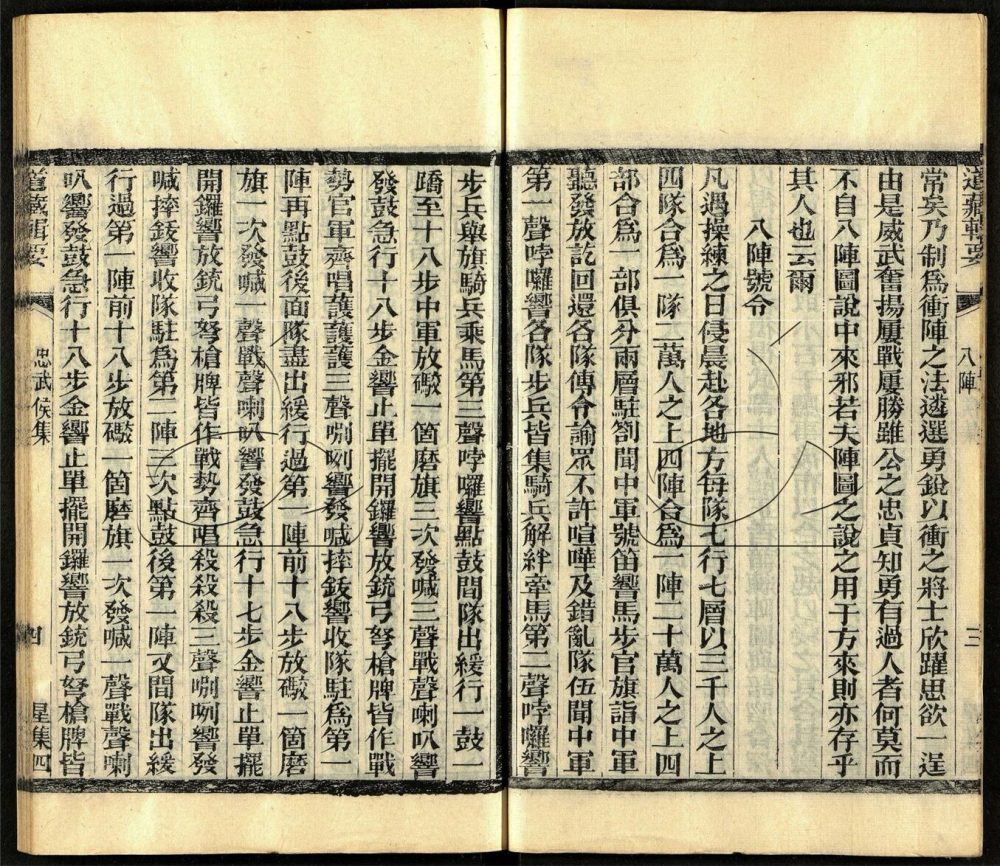 道藏輯要
八陣
三
常矣乃制爲衝陣之法遴選勇銳以衝之將士欣躍思欲一逞
由是威武奮揚屢戰屢勝雖公之忠貞知勇有過人者何莫而
不自八陣圖說中來邪若夫陣圖之說之用于方來則亦存乎
其人也云爾
八陣號令
凡遇操練之日侵晨赴各地方每隊七行七層以三千人之上
四隊合爲一隊二萬人之上四陣合爲一陣二十萬人之上四
部合爲一部俱分兩層駐劄聞中軍號笛響馬步官旗詣中軍
聽發放訖回還各隊傳令諭眾不許喧嘩及錯亂隊伍聞中軍
第一聲哱囉響各隊步兵皆集騎兵解絆牽馬第二聲哱囉響
步兵與旗騎兵乘馬第三聲哱囉響點鼓間隊出緩行一鼓一
蹻至十八步中軍放礟一箇磨旗三次發喊三聲戰聲喇叭響
發鼓急行十八步金響止單擺開鑼響放銃弓弩槍牌皆作戰
勢官軍齊唱護護護三聲喇咧響發喊摔鈸響收隊駐爲第一
陣再點鼓後面隊盡出緩行過第一陣前十八步放礟一箇磨
旗一次發喊一聲戰聲喇叭響發鼓急行十七步金響止單擺
開鑼響放銃弓弩槍牌皆作戰勢齊唱殺殺殺三聲喇咧響發
喊摔鈸響收隊駐爲第二陣三次點鼓後第一陣又間隊出緩
行過第二陣前十八步放礟一箇磨旗一次發喊一聲戰聲喇
叭響發鼓急行十八步金響止單擺開鑼響放銃弓弩槍牌皆
道藏輯要
忠武侯集
四
星集四